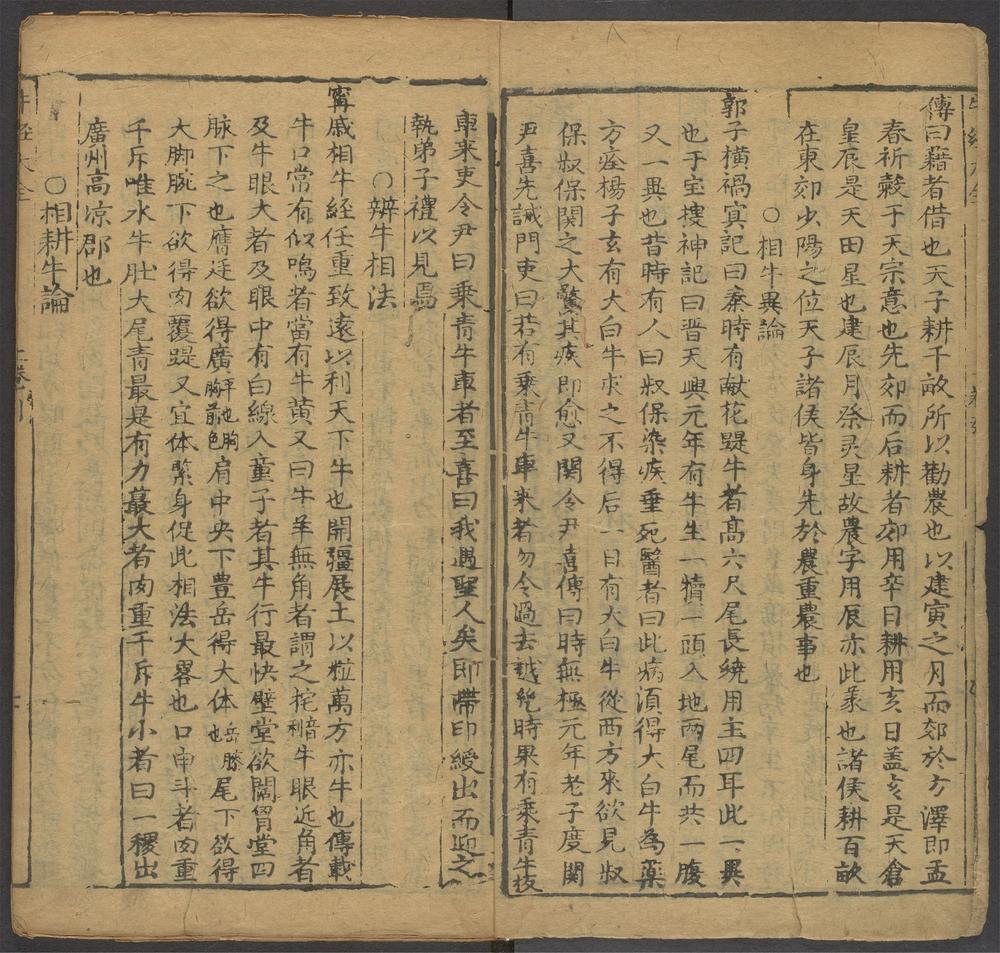 傳曰藉者借也天子耕千畝所以勸農也以建寅之月而郊於方澤即孟
春祈穀于天宗意也先郊而后耕者郊用辛日耕用亥日盖亥是天倉
皇辰是天田星也建辰月祭灵星故農字用辰亦此彖也諸侯耕百畝
在東郊少陽之位天子諸侯皆身先於農重農事也
○相牛異論
郭子橫禍㝠記曰秦時有献花踶牛者高六尺尾長繞用主四耳此一異
也于宝搜神記曰晋天興元年有牛生一犢一頭入地两尾而共一腹
又一異也昔時有人曰叔保染疾垂死醫者曰此病須得大白牛為藥
方痊楊子玄有大白牛求之不得后一日有大白牛從西方來欲見叔
保叔保関之大驚其疾即愈又関令尹喜傳曰時無極元年老子度関
尹喜先誡門吏曰若有乗青牛車来者勿令過去越絶時果有乗青牛板
車来吏令尹曰乗青牛車者至喜曰我遇聖人矣即帶印綬出而迎之
執弟子禮以見焉
○辨牛相法
甯戚相牛経任重致遠以利天下牛也開疆展土以粒萬方亦牛也傳載
牛口常有似鳴者當有牛黄又曰牛羊無角者謂之㸰犗牛眼近角者
及牛眼大者及眼中有白線入童子者其牛行最快壁堂欲闊胷堂四
脉下之也膺廷欲得廣胸前色肩中央下豊岳得大体岳膝也尾下欲得
大脚腕下欲得肉覆踶又宜体緊身促此相法大畧也口申斗者肉重
千斤唯水牛肚大尾青最是有力㝡大者肉重千斤牛小者曰一稷出
廣州高凉郡也
○相耕牛論